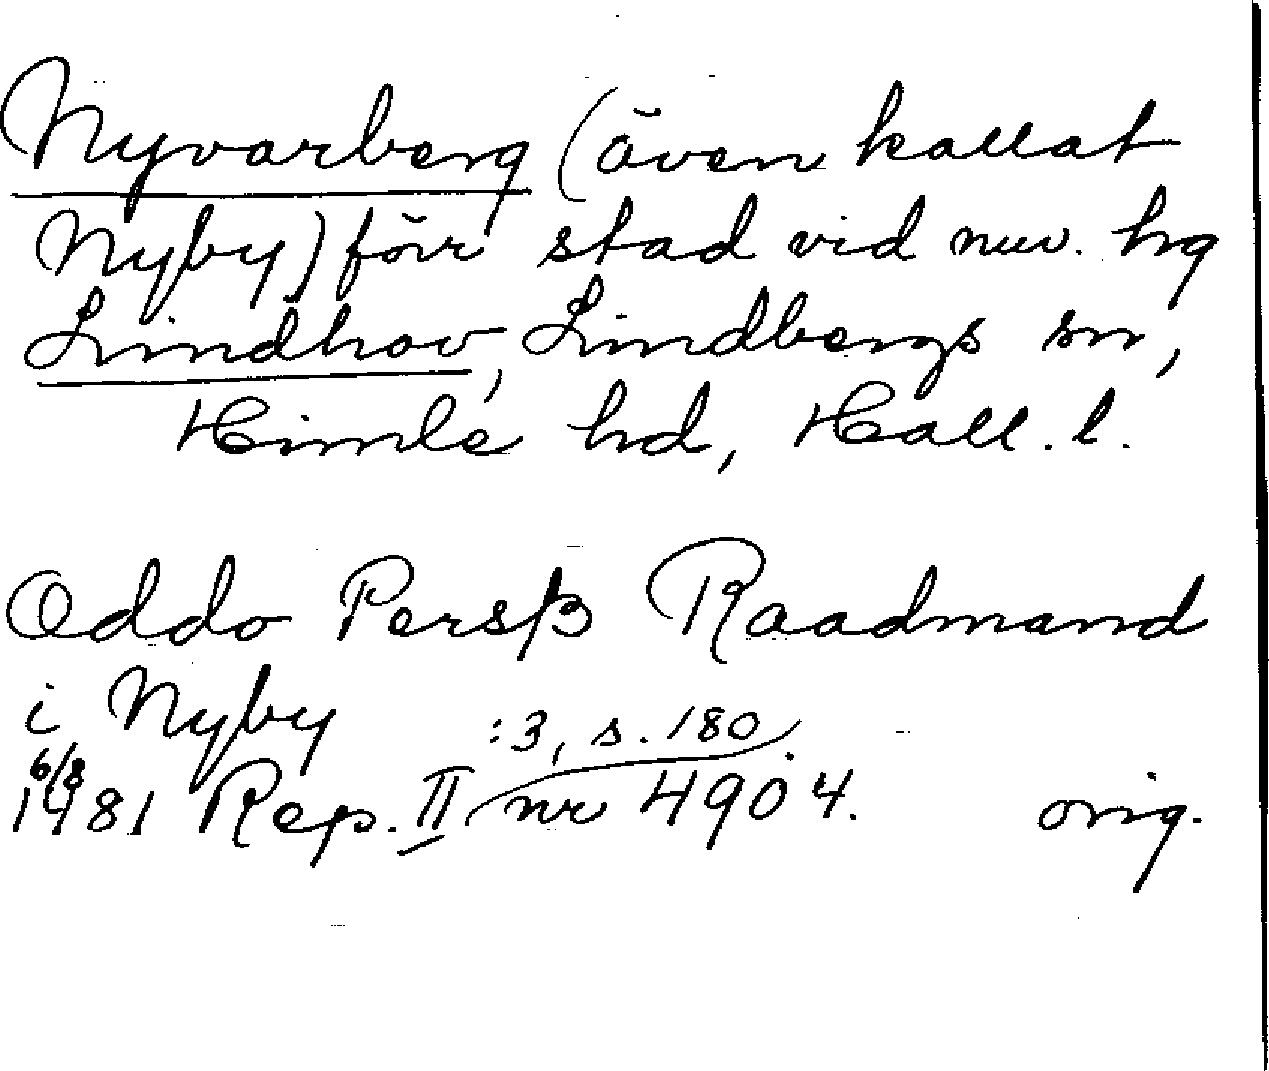 Nyvarberg (även kallat
Nyby) förr stad vid nuv. hg
Lindhov, Lindbergs sn,
Himle hd, Hall. l.
Oddo Persß Raadmand
i Nyby :3, s. 180.
6/8
1481 Rep. II nr 4904. orig.